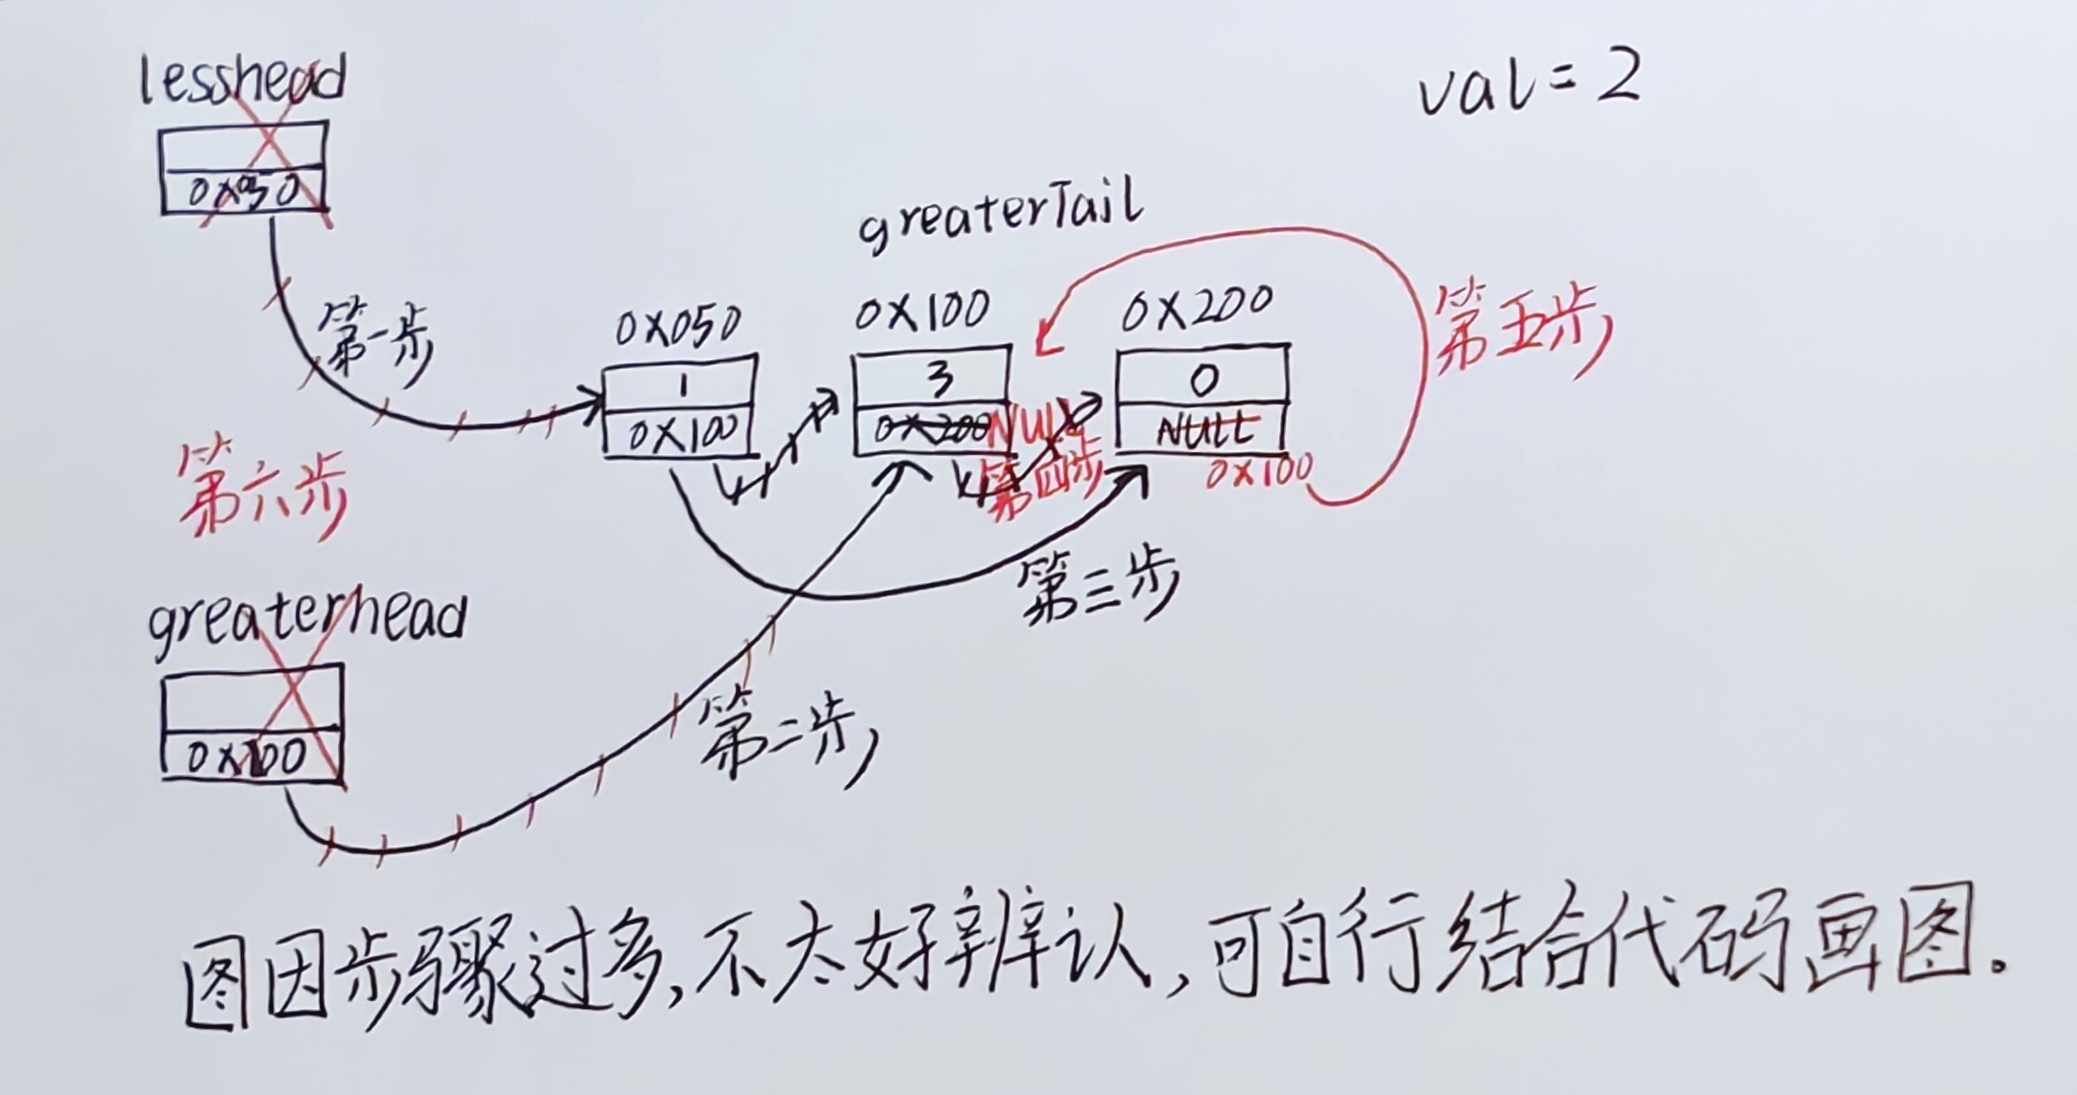 lesshead
val=2
0x050
greaterTail
第一步
0x050
0x100
0x200
第五步
1
3
0
0x100
0x200
NULL
NULL
第四步
0x100
第六步
第三步
greaterhead
0x100
第二步
图因步骤过多,不太好辨认,可自行结合代码画图.